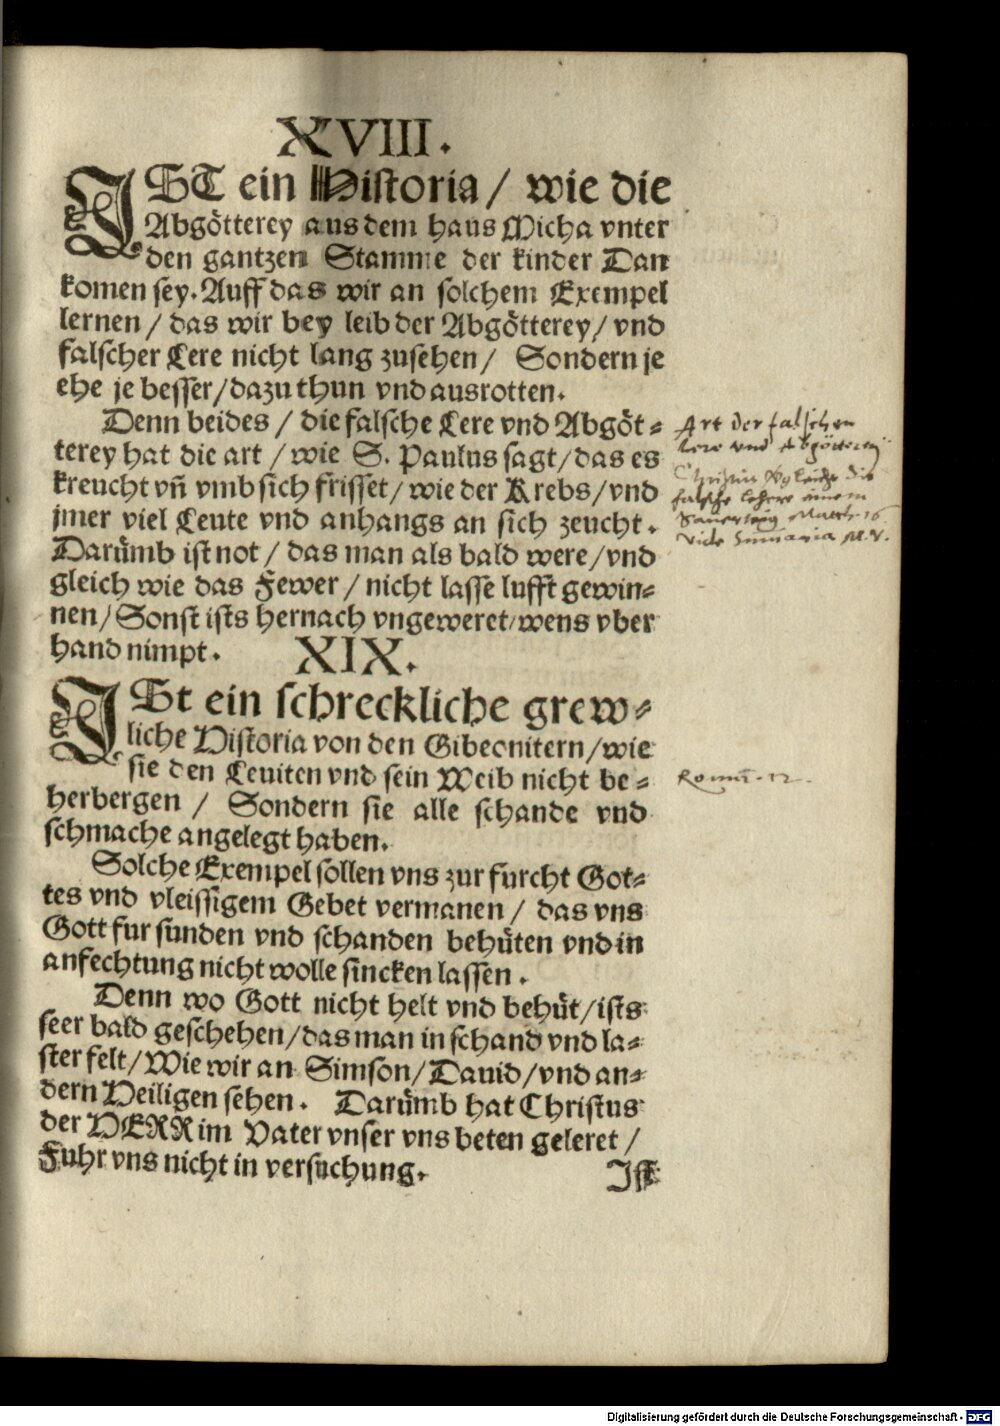 XVIII.
JST ein Historia / wie die
Abgötterey aus dem haus Micha vnter
den gantzen Stamme der kinder Dan
komen sey. Auff das wir an solchem Exempel
lernen / das wir bey leib der Abgötterey / vnd
falscher Lere nicht lang zusehen / Sondern je
ehe je besser / dazu thun vnd ausrotten.
Denn beides / die falsche Lere vnd Abgöt-
terey hat die art / wie S. Paulus sagt / das es
kreucht vñ vmb sich frisset / wie der Krebs / vnd
jmer viel Leute vnd anhangs an sich zeucht.
Darümb ist not / das man als bald were / vnd
gleich wie das Fewer / nicht lasse lufft gewin-
nen / Sonst ists hernach vngeweret / wens vber
hand nimpt.
Art der falschen
lere vnd Abgötterey
die
falsche lehre einem
Sauerteig Matth. 16
XIX.
JSt ein schreckliche grew-
liche Historia von den Gibeonitern / wie
sie den Leuiten vnd sein Weib nicht be-
herbergen / Sondern sie alle schande vnd
schmache angelegt haben.
Solche Exempel sollen vns zur furcht Got-
tes vnd vleissigem Gebet vermanen / das vns
Gott fur sunden vnd schanden behüten vnd in
anfechtung nicht wolle sincken lassen.
Denn wo Gott nicht helt vnd behüt / ists
seer bald geschehen / das man in schand vnd la-
ster felt / Wie wir an Simson / Dauid / vnd an-
dern Heiligen sehen. Darümb hat Christus
der HERR im Vater vnser vns beten geleret /
Fuhr vns nicht in versuchung.
Jst
Digitalisierung gefördert durch die Deutsche Forschungsgemeinschaft - DFG